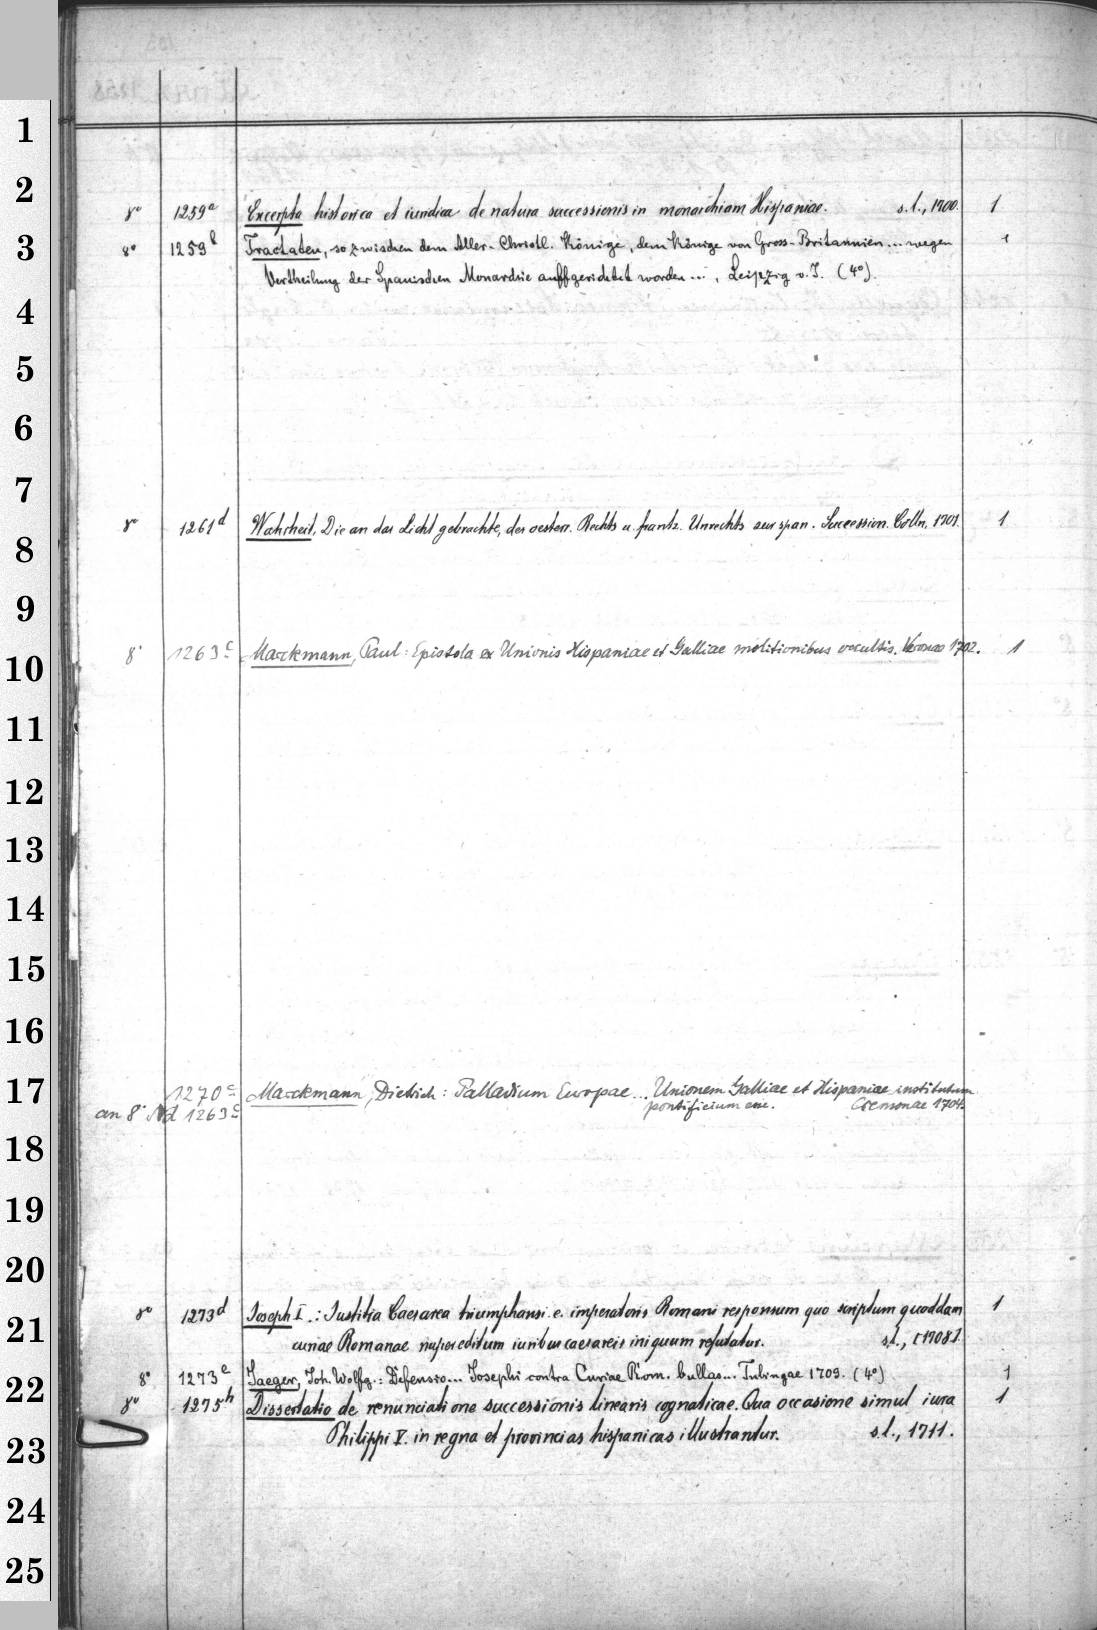 1
2
8° 1259a Excerpta historica et iuridica de natura successionis in monarchiam Hispaniae. s.l., 1700. 1
3
8° 1259b Tractaten, so zwischen dem Aller-Christl. Könige, dem Könige von Gross-Britannien... wegen 1
Vertheilung der Spanischen Monarchie auffgerichtet worden..., Leipzig o.J. (4°).
4
5
6
7
8° 1261d Wahrheit, Die an das Licht gebrachte, des oesterr. Rechts u. frantz. Unrechts zur span. Succession. Cölln, 1701. 1
8
9
8° 1263c Marckmann, Paul: Epistola ex Unionis Hispaniae et Galliae molitionibus occultis. Veronae 1702. 1
10
11
12
13
14
15
16
17
1270c Marckmann, Dietrich: Palladium Europae... Unionem Galliae et Hispaniae institutum
an 8° Nd 1263c pontificium Cremonae 1704.
18
19
20
8° 1273d Joseph I.: Iustitia Caesarea triumphans i.e. imperatoris Romani responsum quo scriptum quoddam 1
21
curiae Romanae nuper editum iuribus caesareis iniquum refutatur. s.l., [1708].
8° 1273e Jaeger, Joh. Wolfg.: Defensio... Josephi contra Curiae Rom. bullas... Tubingae 1709. (4°) 1
22
8° 1275h Dissertatio de renunciatione successionis linearis cognaticae. Qua occasione simul iura 1
Philippi V. in regna et provincias hispanicas illustrantur. s.l., 1711.
23
24
25